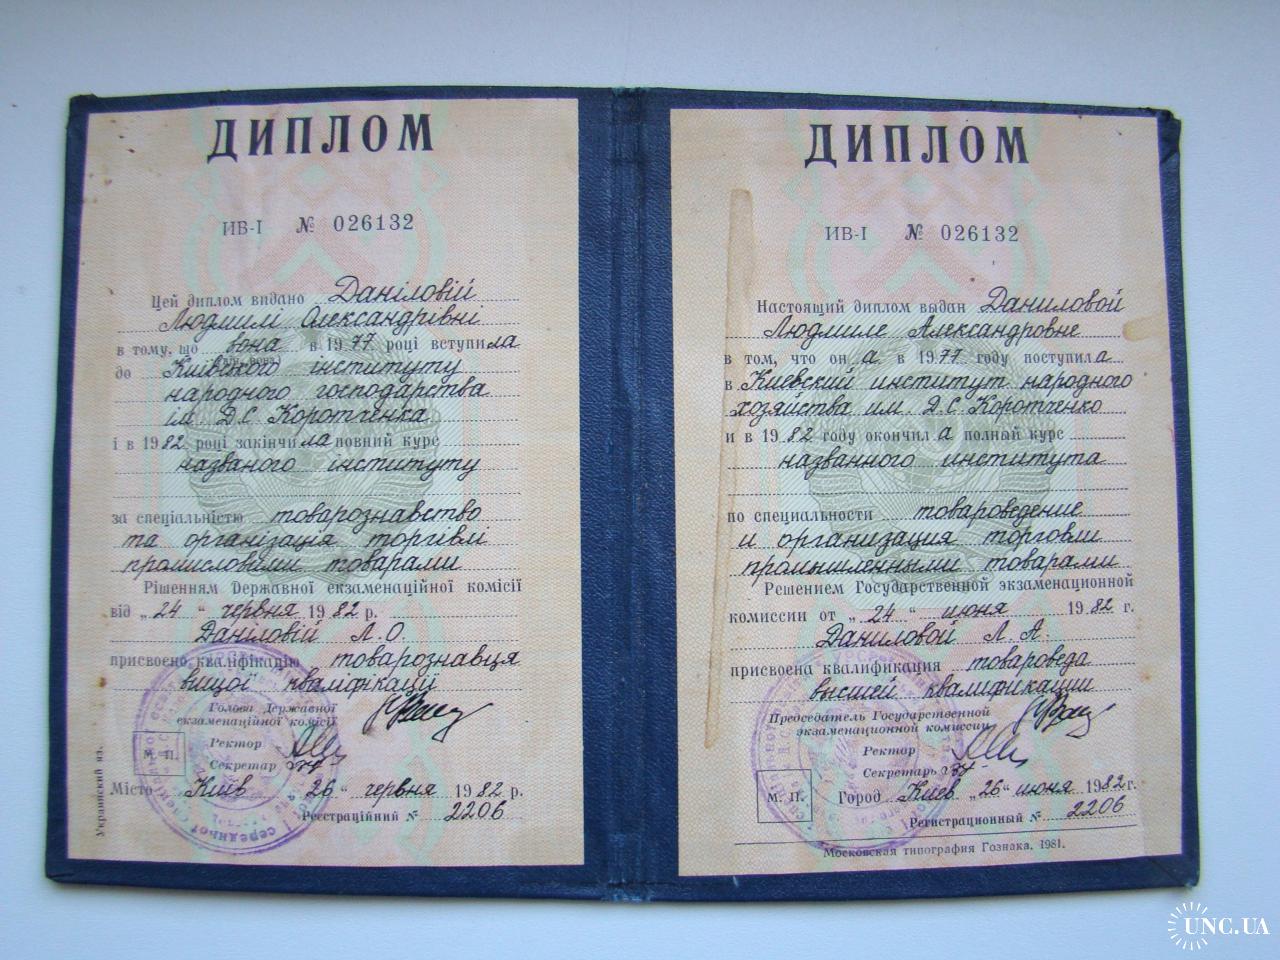 ДИПЛОМ
ИВ-I № 026132
Цей диплом видано Даніловій
Людмилі Олександрівні
в тому, що вона в 1977 році вступила
до Київського інституту
народного господарства
ім. Д.С. Коротченка
і в 1982 році закінчила повний курс
названого інституту
за спеціальністю товарознавство
та організація торгівлі
промисловими товарами
Рішенням Державної екзаменаційної комісії
від „24“ червня 1982 р.
Даніловій Л. О.
присвоєно кваліфікацію товарознавця
вищої кваліфікації
Голова Державної
екзаменаційної комісії
Ректор
М. П.
Секретар
Місто Київ „26“ червня 1982 р.
Реєстраційний № 2206
Украинский яз.
ДИПЛОМ
ИВ-I № 026132
Настоящий диплом выдан Даниловой
Людмиле Александровне
в том, что он а в 1977 году поступила
в Киевский институт народного
хозяйства им. Д.С. Коротченко
и в 1982 году окончил а полный курс
названного института
по специальности товароведение
и организация торговли
промышленными товарами
Решением Государственной экзаменационной
комиссии от „24“ июня 1982 г.
Даниловой Л. А.
присвоена квалификация товароведа
высшей квалификации
Председатель Государственной
экзаменационной комиссии
Ректор
Секретарь
М. П.
Город Киев „26“ июня 1982 г.
Регистрационный № 2206
Московская типография Гознака. 1981.
UNC.UA